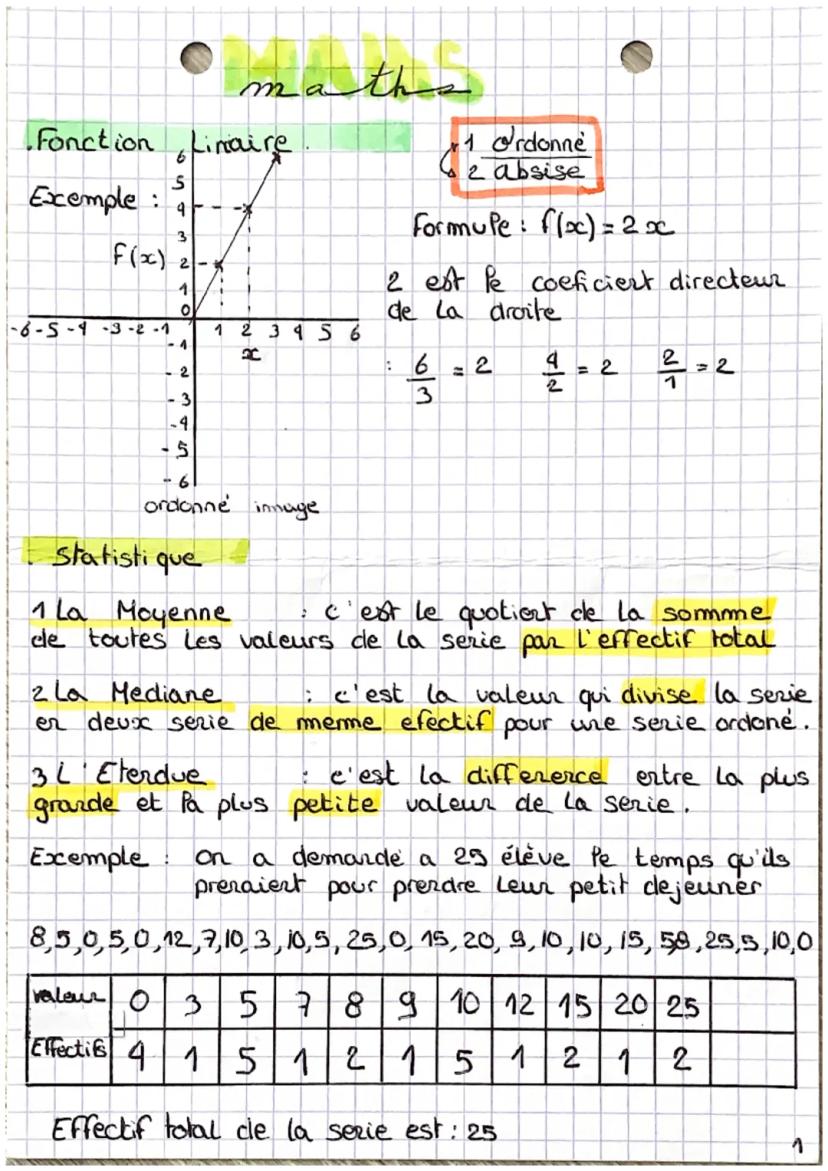 MAThS
maths
. Fonction Linaire .
1 Ordonné
2 absise
Exemple :
Formule : f(x) = 2x
f(x)
6
5
4
3
2
1
0
-6 -5 -4 -3 -2 -1 1 2 3 4 5 6
x
-1
-2
-3
-4
-5
-6
2 est le coeficient directeur
de la droite
: 6/3 = 2 4/2 = 2 2/1 = 2
ordonné image
. Statistique
1 La Moyenne : c'est le quotient de la sommme
de toutes les valeurs de la serie par l'effectif total
2 La Mediane : c'est la valeur qui divise la serie
en deux serie de merme efectif pour une serie ordoné.
3 L'Eterdue : c'est la difference entre la plus
grande et la plus petite valeur de la serie.
Exemple : on a demandé a 25 élève le temps qu'ils
prenaient pour prendre leur petit dejeuner
8,5,0,5,0,12,7,10,3,10,5,25,0,15,20,9,10,10,15,58,25,5,10,0
valeur 0 3 5 7 8 9 10 12 15 20 25
Effectifs 4 1 5 1 2 1 5 1 2 1 2
Effectif total de la serie est : 25
1